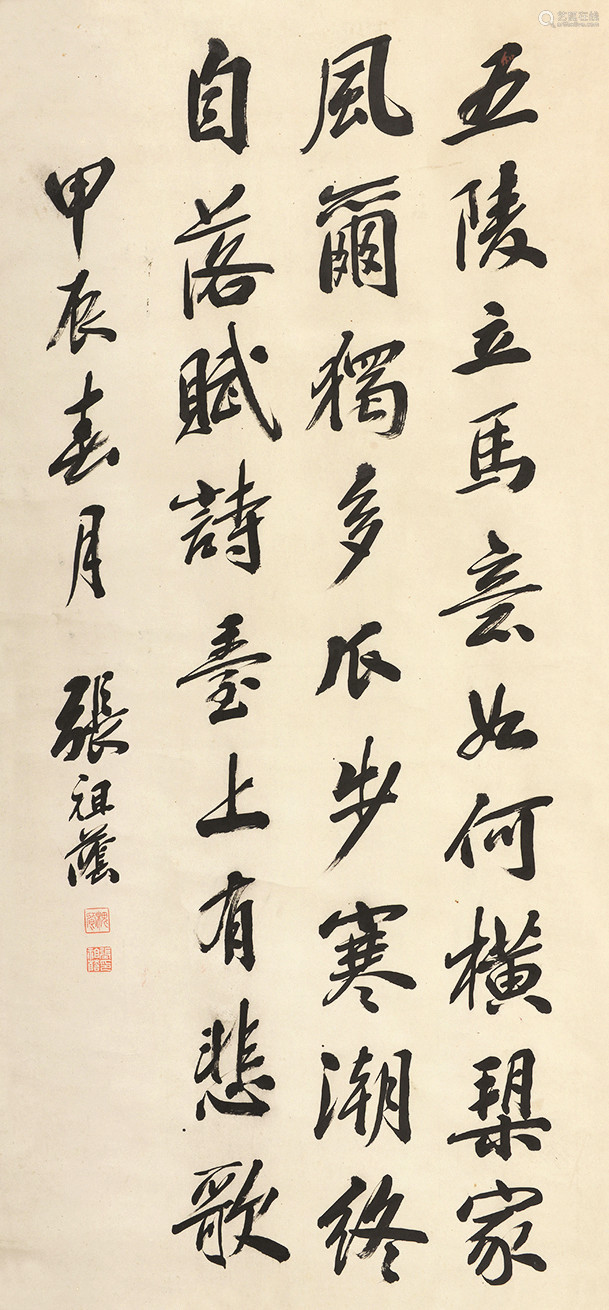 五陵立馬意如何橫槊家
風爾獨多瓜步寒潮終
自落賦詩臺上有悲歌
甲辰春月 張祖蔭
艺狐在线